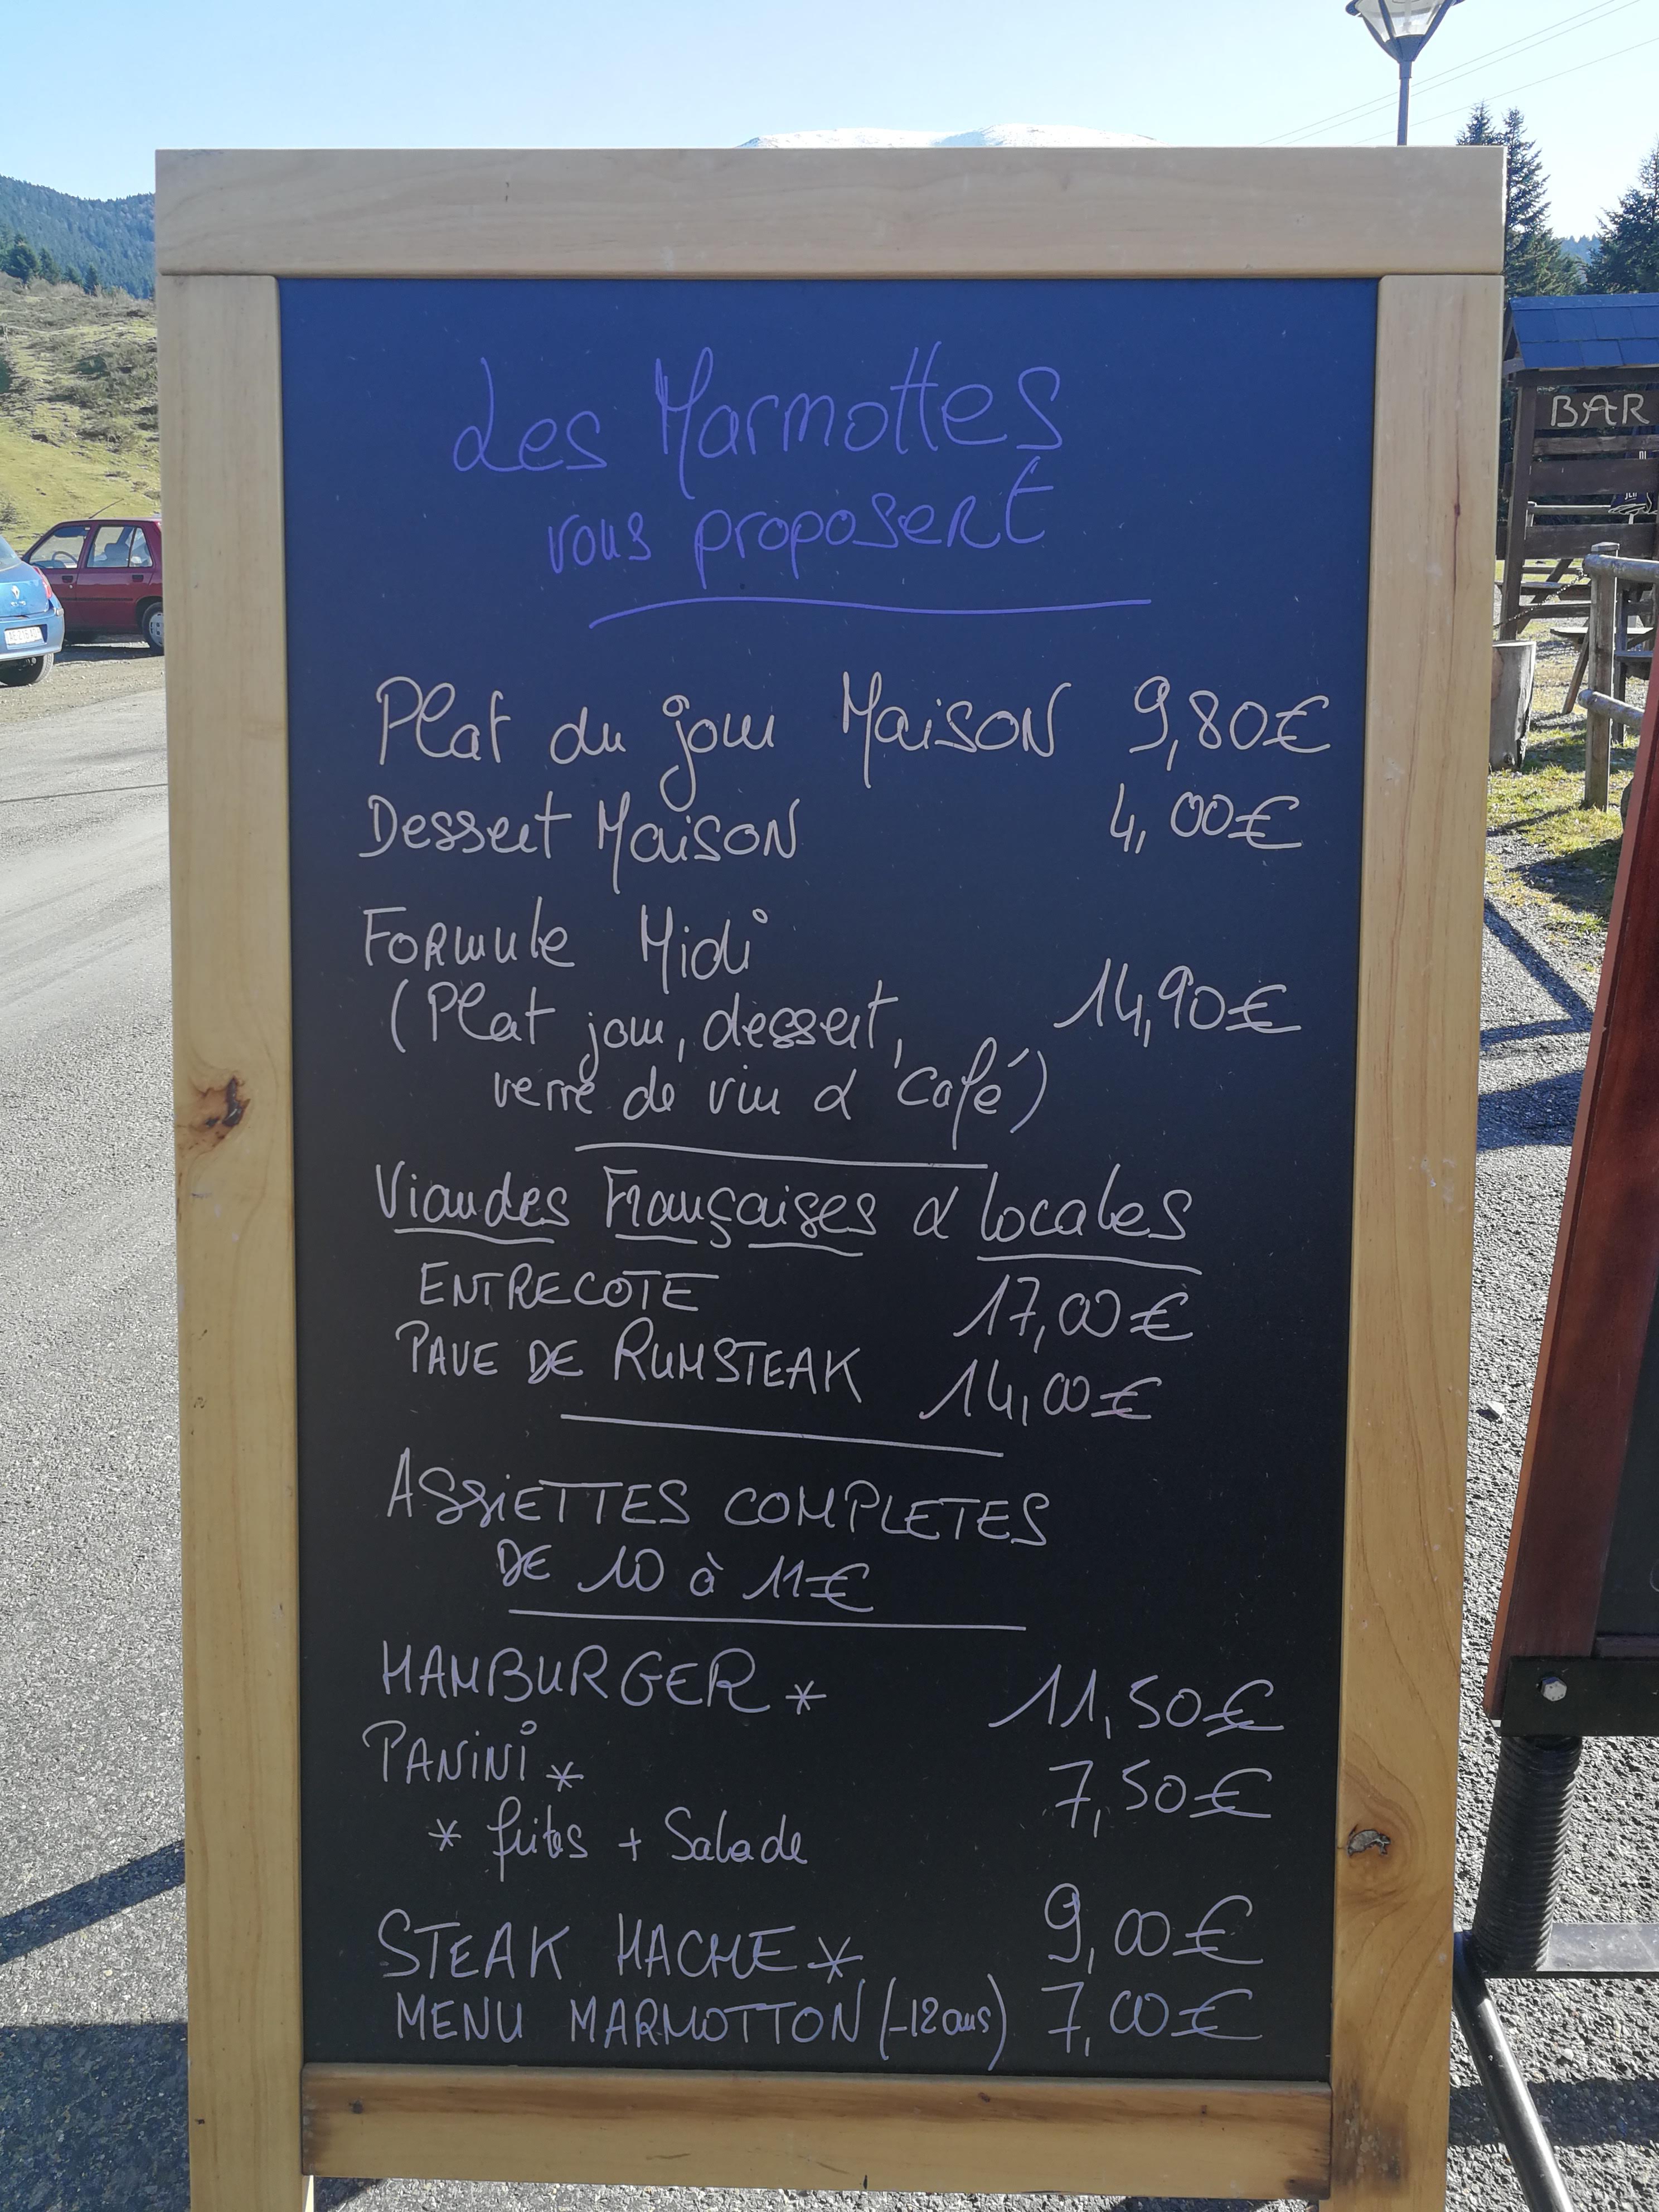 Les Marmottes
vous proposent
Plat du jour Maison 9,80€
Dessert Maison 4,00€
Formule Midi
(Plat jour, dessert, 14,90€
verre de vin & café)
Viandes Françaises & locales
ENTRECOTE 17,00€
PAVE DE RUMSTEAK 14,00€
ASSIETTES COMPLETES
DE 10 à 11€
HAMBURGER * 11,50€
PANINI * 7,50€
* frites + Salade
STEAK HACHE * 9,00€
MENU MARMOTTON (-12 ans) 7,00€
BAR